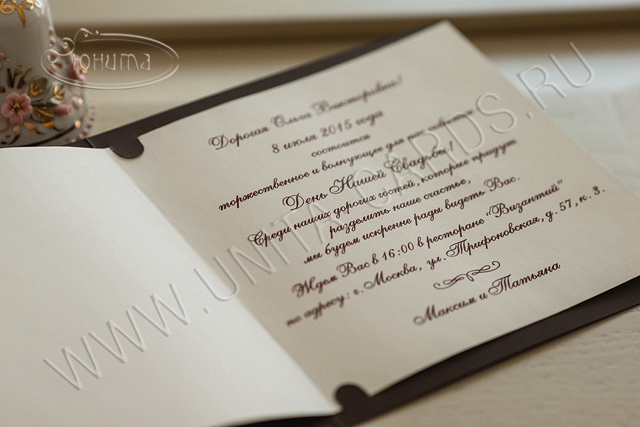 Юнита
Дорогая Ольга Викторовна!
8 июля 2015 года
состоится
торжественное и волнующее для нас событие
День Нашей Свадьбы!
Среди наших дорогих гостей, которые придут
разделить наше счастье,
мы будем искренне рады видеть Вас.
Ждем Вас в 16:00 в ресторане "Византий"
по адресу: г. Москва, ул. Трифоновская, д. 57, к. 3.
Максим и Татьяна
WWW.UNITACARDS.RU